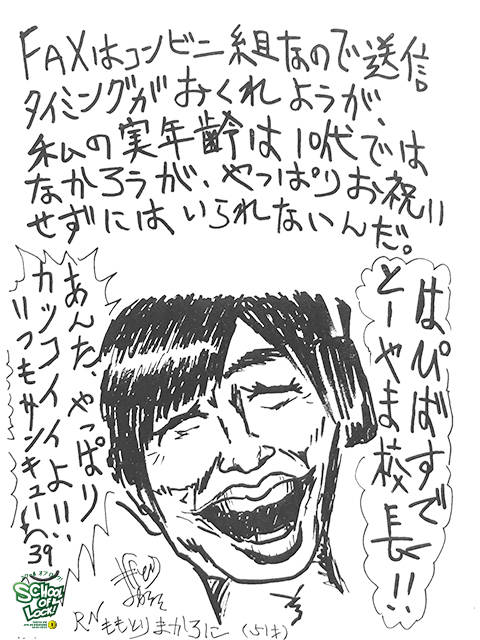 FAXはコンビニ組なので送信
タイミングがおくれようが、
私の実年齢は10代では
なかろうが、やっぱりお祝い
せずにはいられないんだ。
はぴばすで
とーやま校長!!
あんた やっぱり
カッコイイよ!!
いつもサンキューへ
39
SCHOOL
OF
LOCK!
RN ももとりまかろに